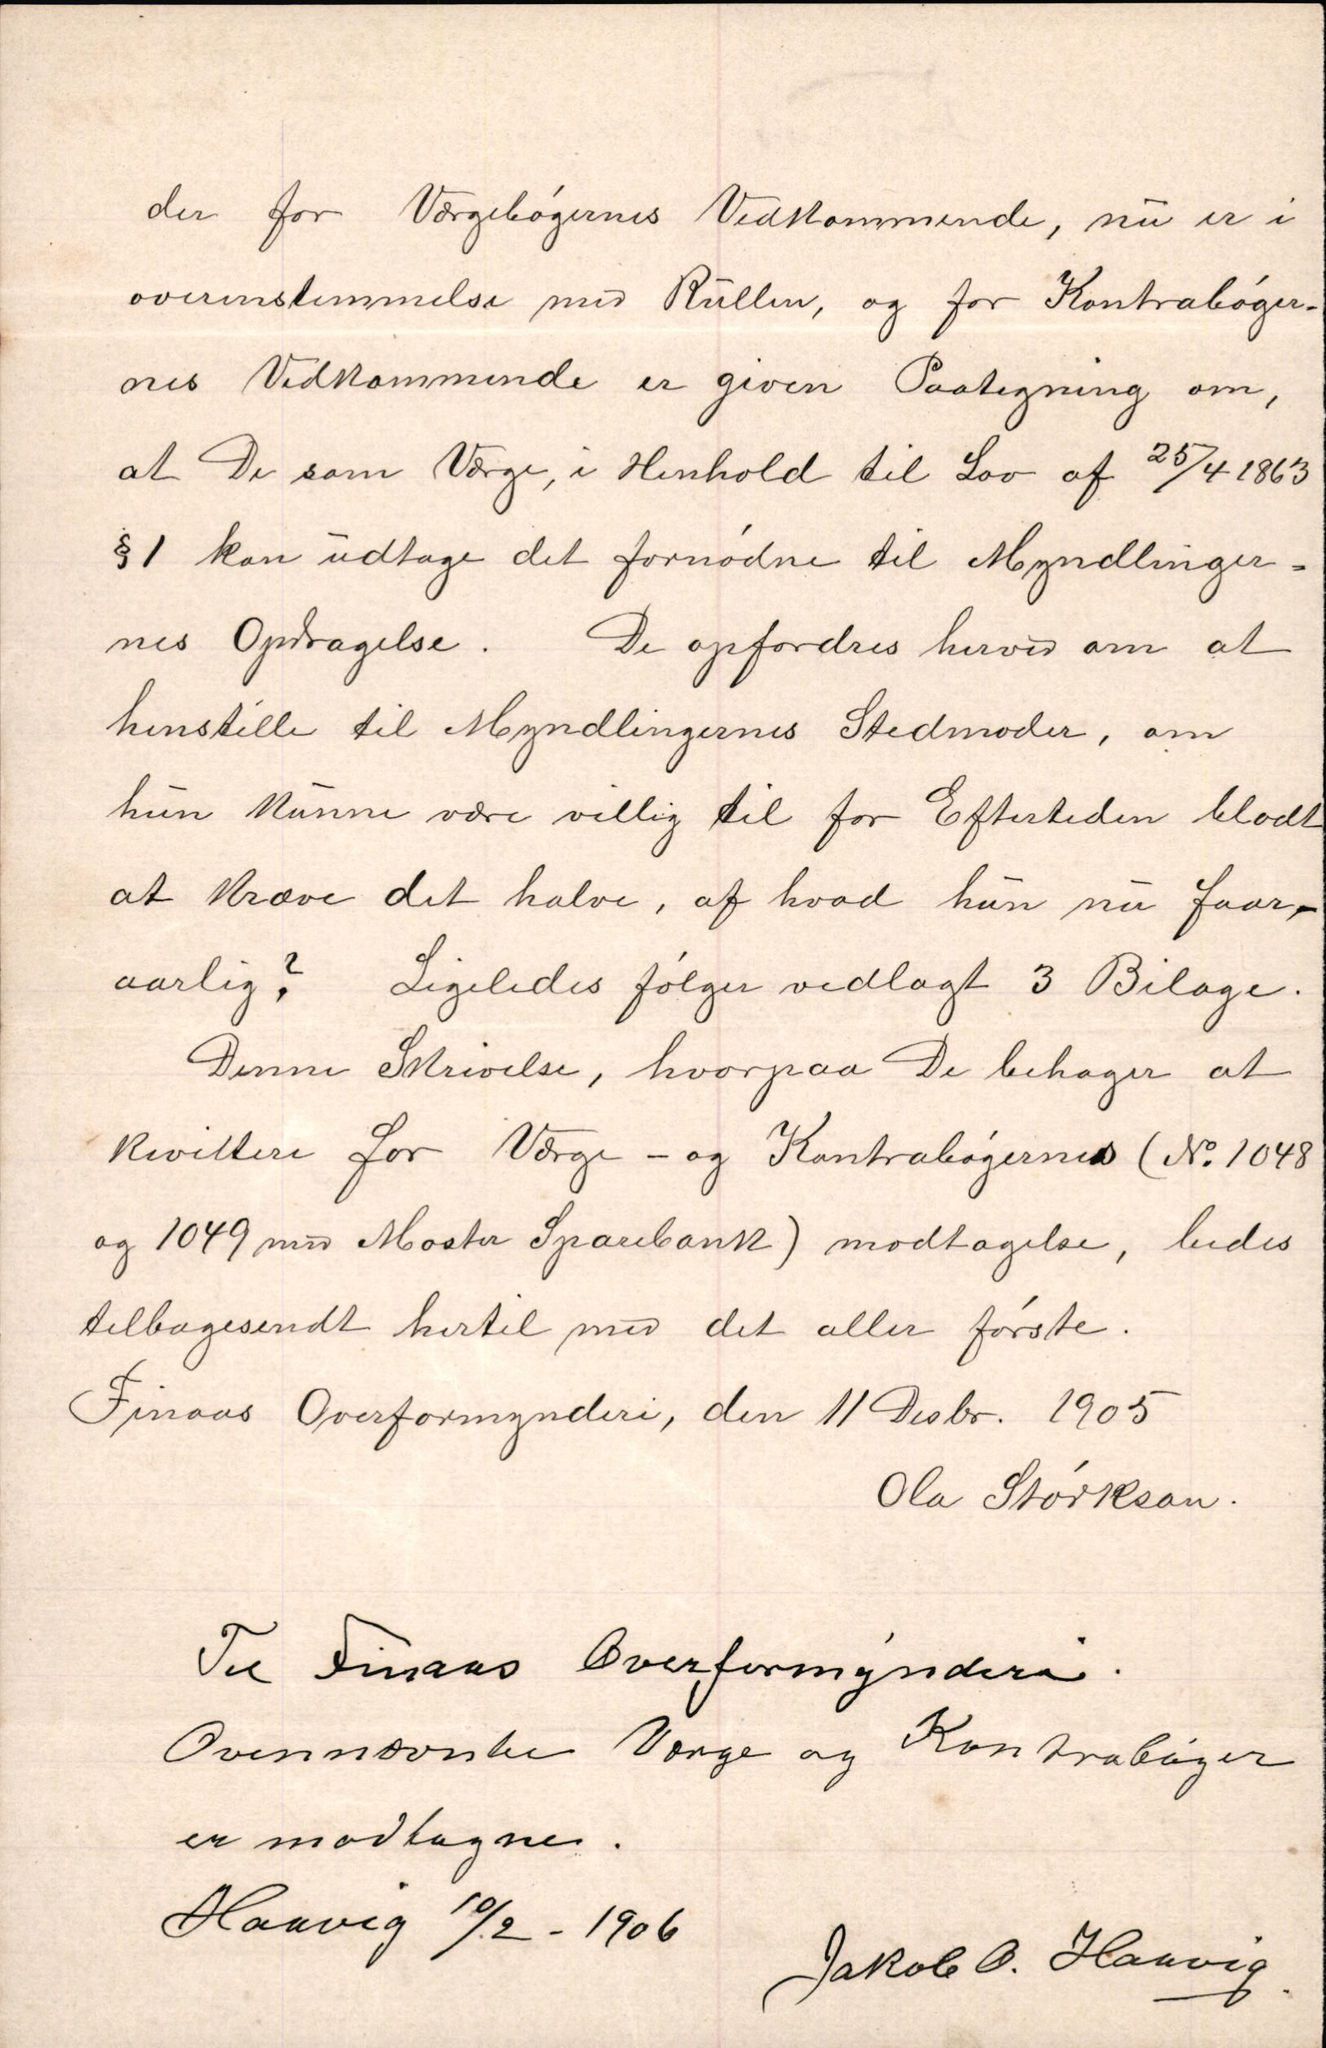 der for Værgebøgernes Vedkommende, nu er i
overenstemmelse med Rullen, og for Kontrabøger-
nes Vedkommende er given Paategning om,
at De som Værge, i Henhold til Lov af 25/4 1863
§ 1 kan udtage det fornødne til Myndlinger-
nes Opdragelse. De opfordres herved om at
henstille til Myndlingernes Stedmoder, om
hun kunne være villig til for Eftertiden blodt
at kræve det halve, af hvad hun nu faar,-
aarlig? Ligeledes følger vedlagt 3 Bilage.
Denne Skrivelse, hvorpaa De behager at
kvittere for Værge- og Kontrabøgernes (No. 1048
og 1049 med Moster Sparebank) modtagelse, bedes
tilbagesendt hertil med det aller første.
Finaas Overformynderi, den 11 Desbr. 1905
Ola Størkson.
Til Finaas Overformynderi.
Ovennævnte Værge og Kontrabøger
er modtagne.
Haavig 10/2 - 1906
Jakob O. Haavig.